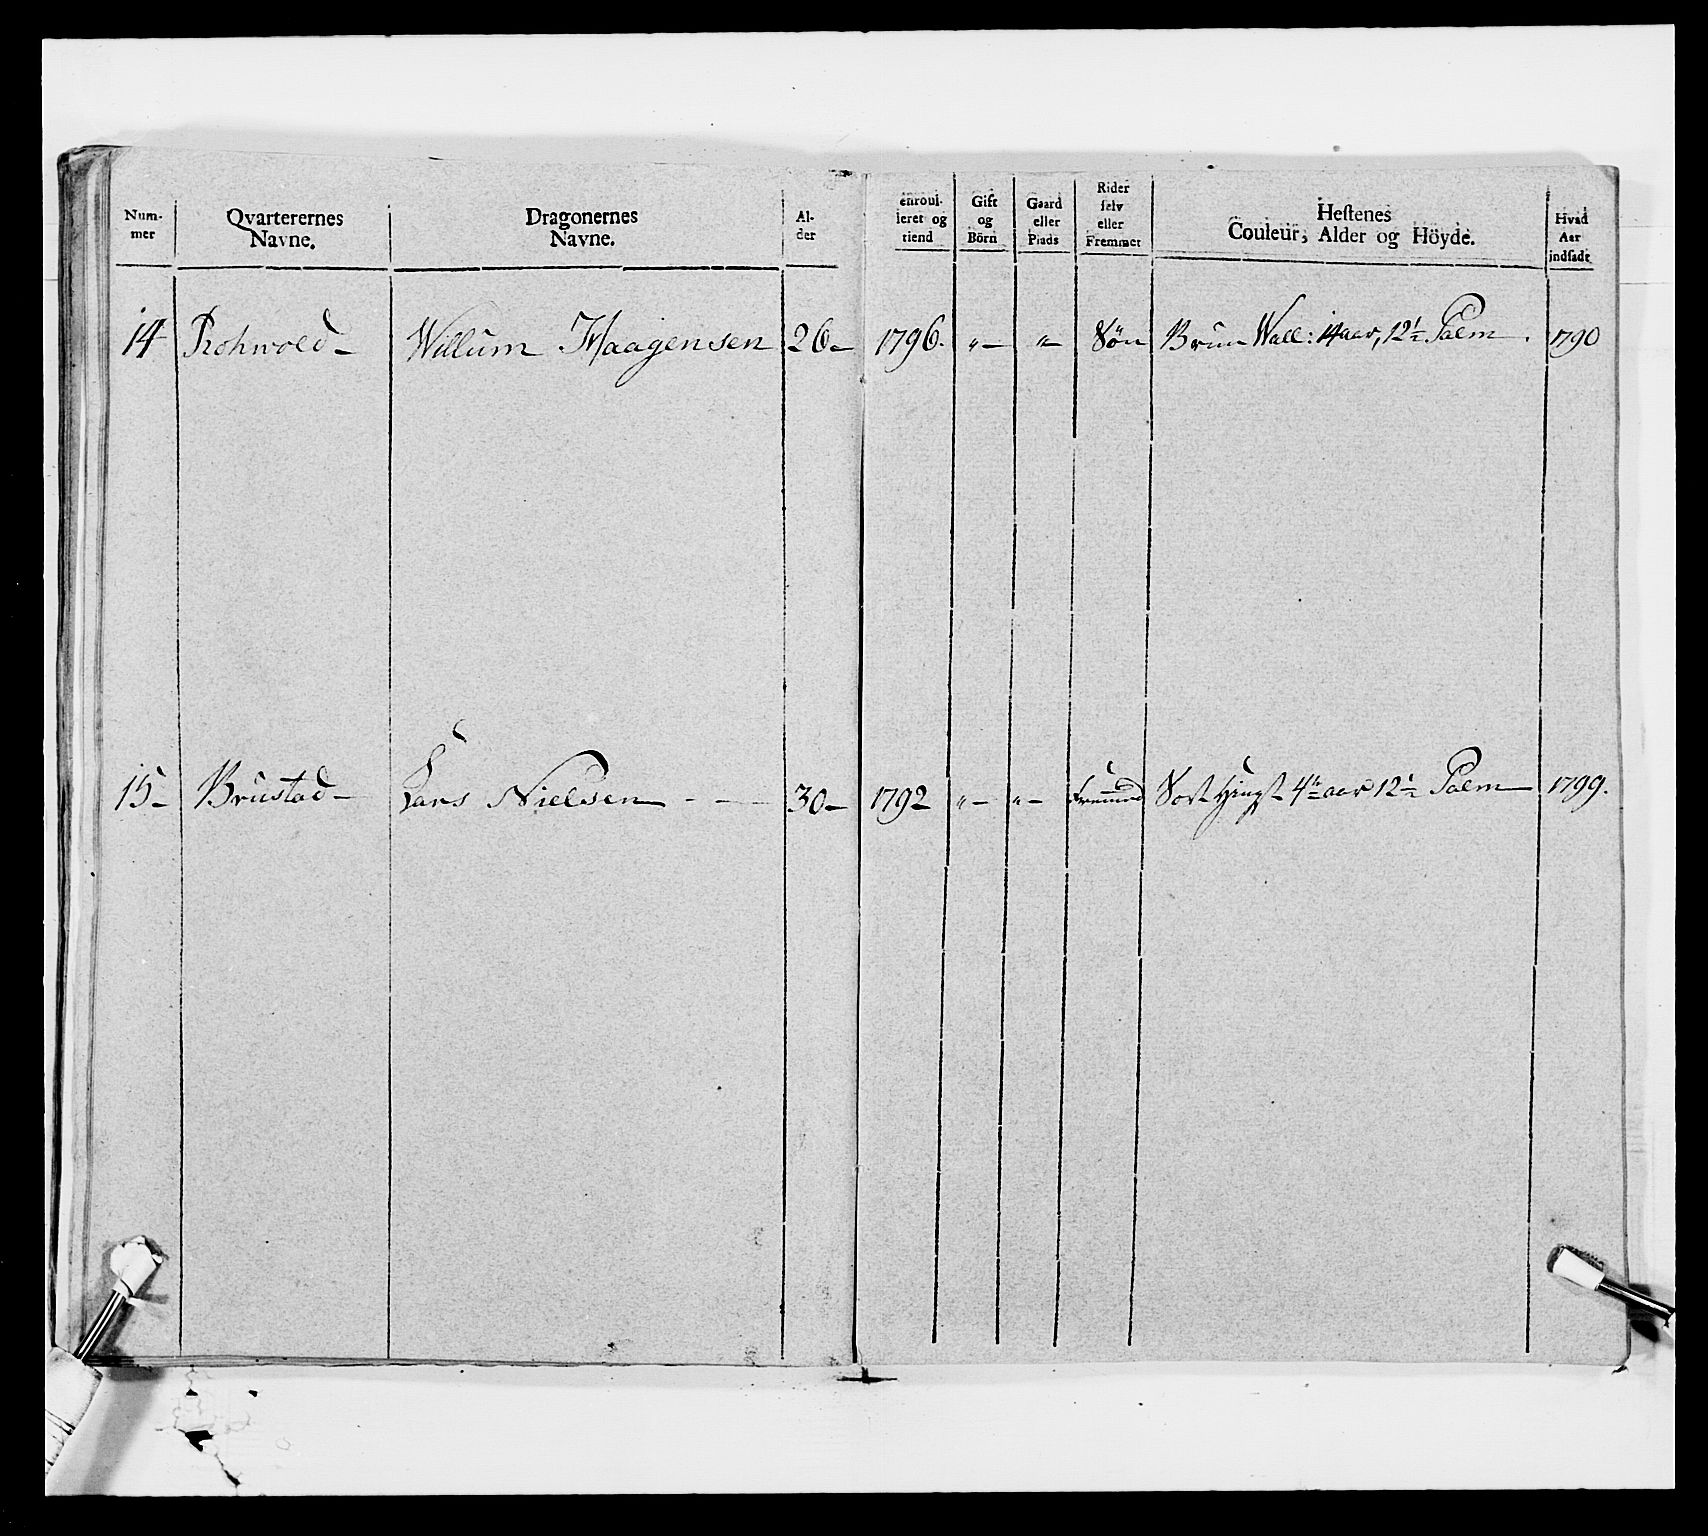 Num-
mer
Qvarterernes
Navne.
Dragonernes
Navne.
Al-
der
enroul-
leret og
tiend
Gift
og
Börn
Gaard
eller
Plads
Rider
selv
eller
Fremmet
Hestenes
Couleur, Alder og Höyde.
Hvad
Aar
indsadt
14 Rohwold - Willum Haagensen 26 - 1796. „ - „ - Sön Brun Wall: 14 aar, 12 1/2 Palm . 1790
15 - Brustad - Lars Nielsen - - - 30 - 1792 „ - „ - Fremmed Sort Hingst 4 1/2 aar 12 1/2 Palm - 1799.